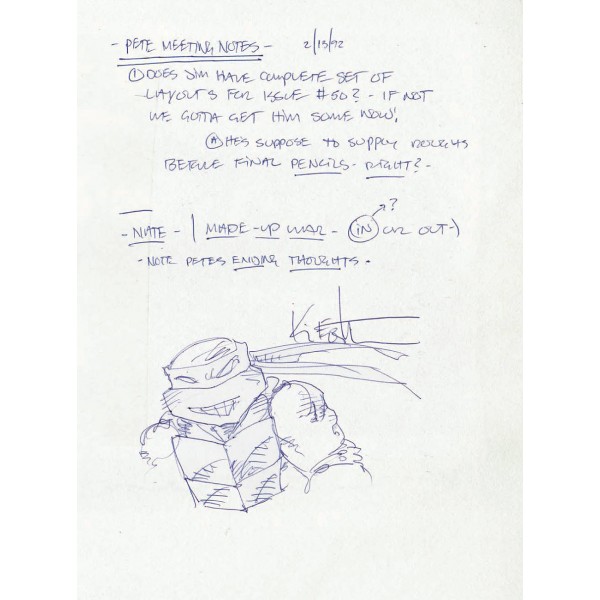 - PETE MEETING NOTES - 2/13/92
① DOES JIM HAVE COMPLETE SET OF
LAYOUTS FOR ISSUE #50? - IF NOT
WE GOTTA GET HIM SOME NOW!
Ⓐ HE'S SUPPOSE TO SUPPLY ROUGHS
BEFORE FINAL PENCILS - RIGHT? -
?
- NATE - | MADE-UP WAR - IN OR OUT -)
- NOTE PETES ENDING THOUGHTS.